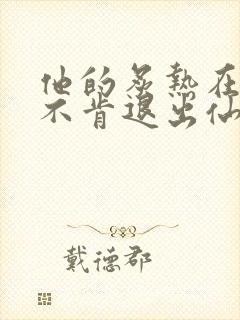 他的炙热在
不肯退出仙
戴德郡